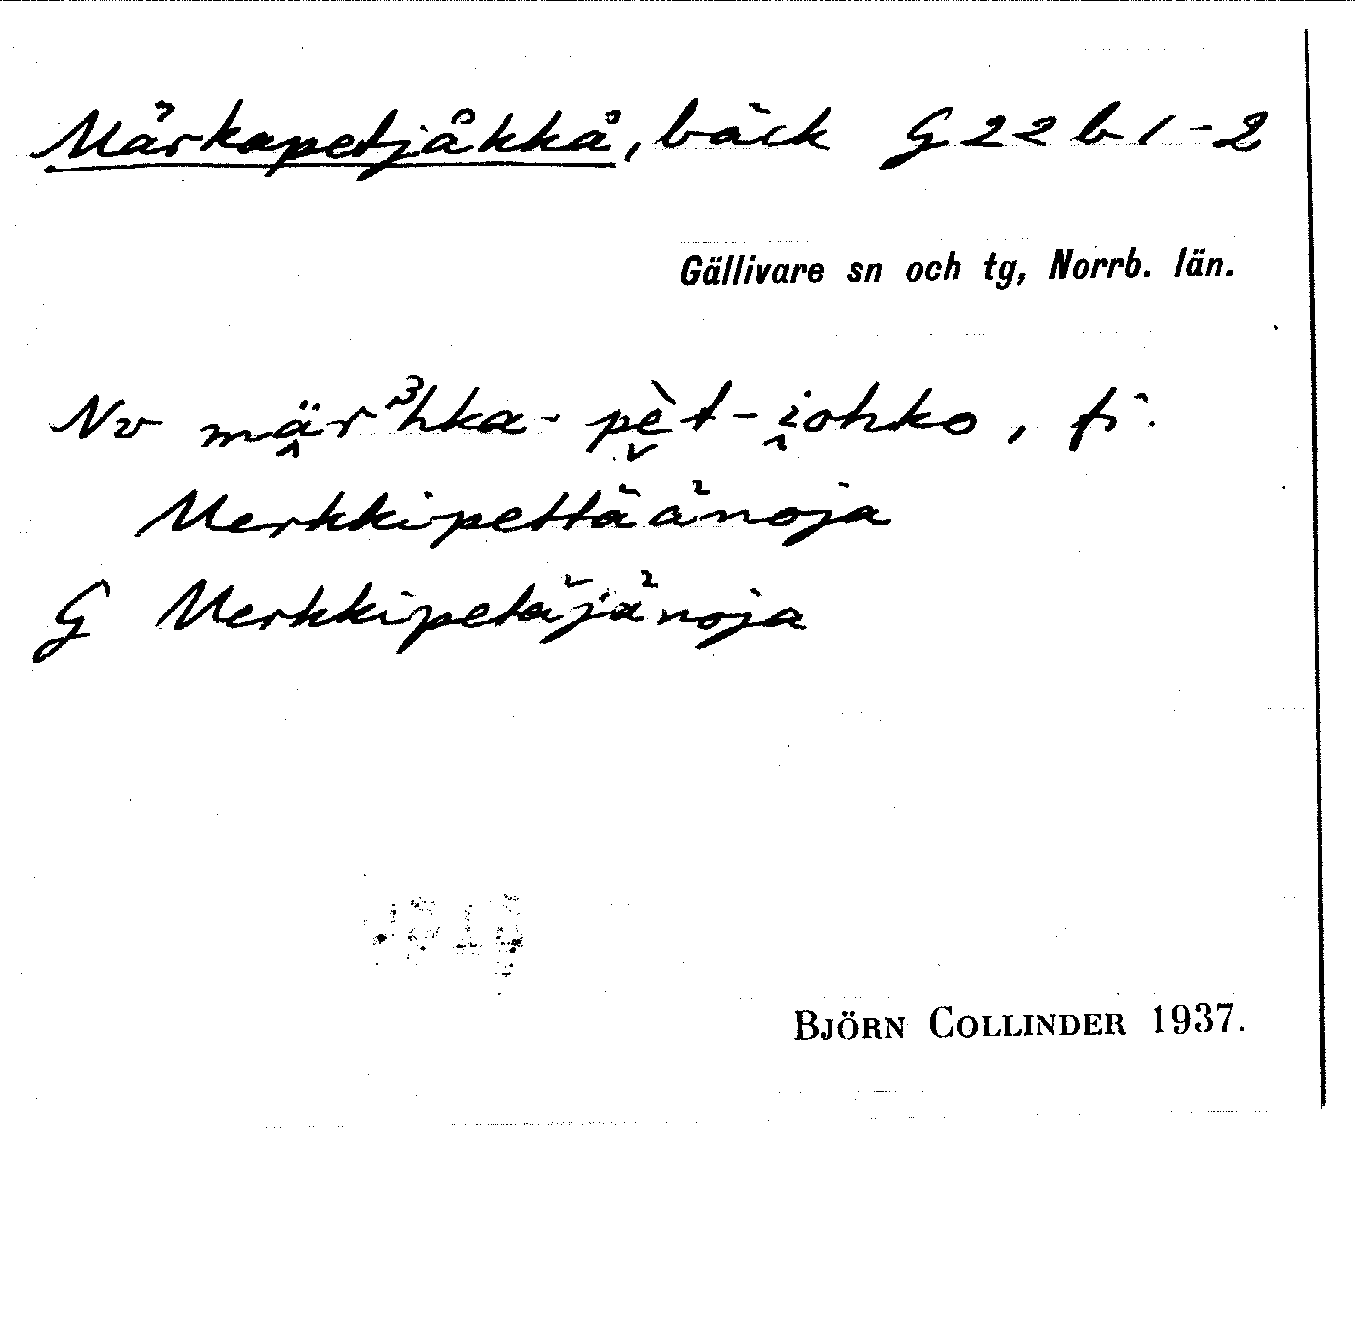 Märkapetjåkkå, bäck G 22 b 1-2
Gällivare sn och tg, Norrb. län.
Nv mä̭r³hka-pè̬t-i̭ohko, fi.
Merkkipettäänoja
G Merkkipetäjänoja
BJÖRN COLLINDER 1937.